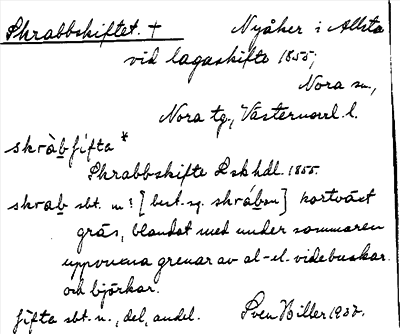 Skrabbskiftet. † Nyåker i Allsta
vid lagaskifte 1855;
Nora sn.,
Nora tg., Västernorrl. l.
skràb̲fifta *
Skrabbskifte Lskhdl. 1855.
skrab sbt. n! [best. sg. skráb̲ən] kortväxt
gräs, blandat med under sommaren
uppvuxna grenar av al- el. videbuskar
och björkar.
fifta sbt. n., del, andel. Sven Hiller 1937.